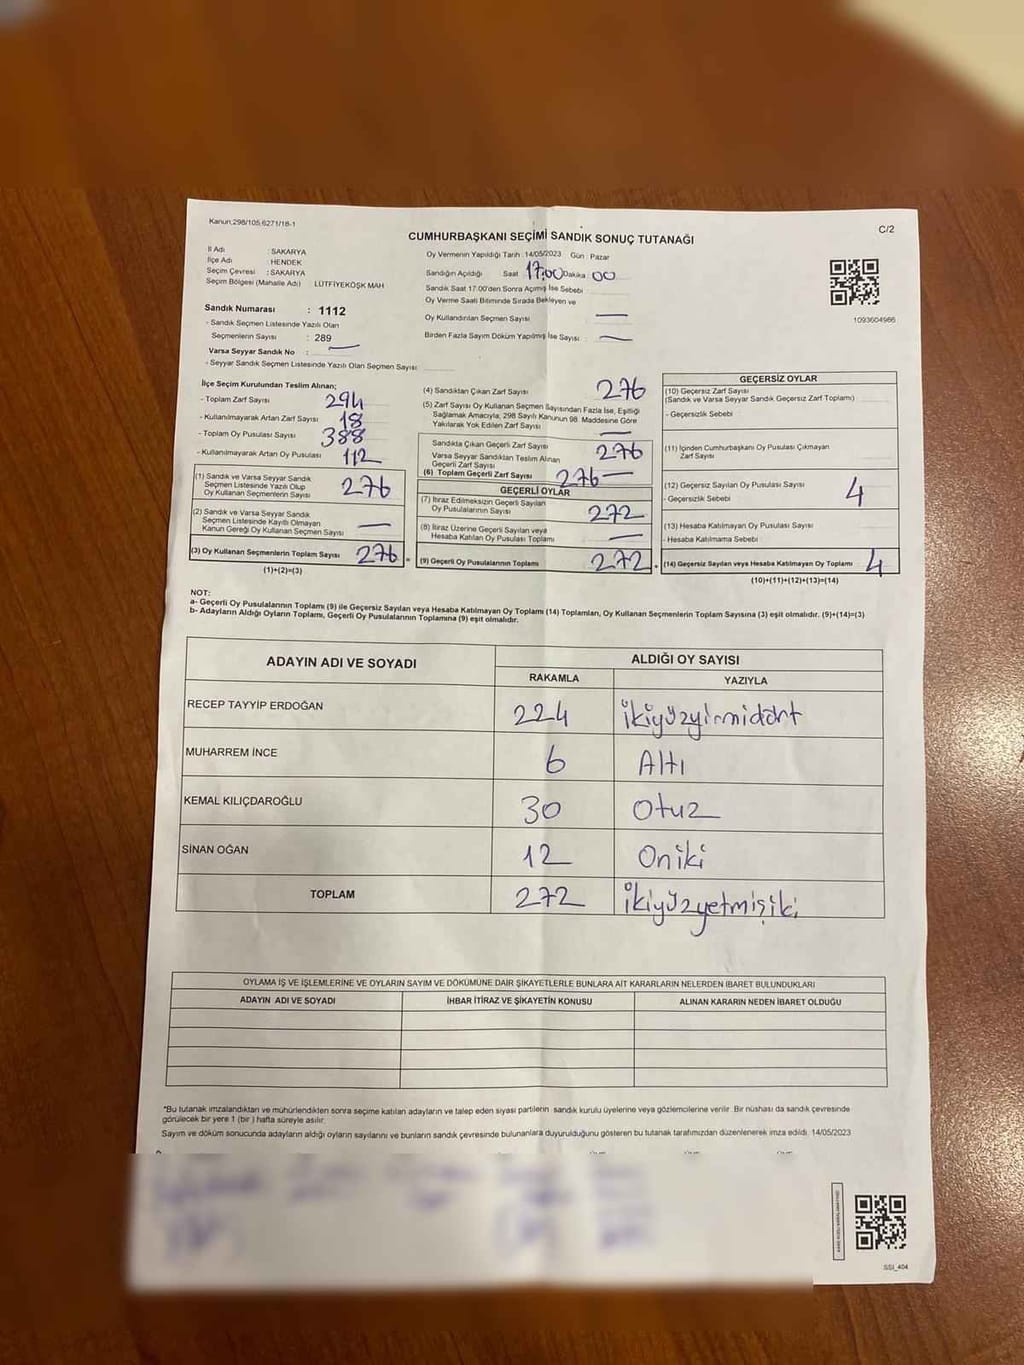 Kanun:298/105,6271/18-1
C/2
CUMHURBAŞKANI SEÇİMİ SANDIK SONUÇ TUTANAĞI
İl Adı : SAKARYA
İlçe Adı : HENDEK
Seçim Çevresi : SAKARYA
Seçim Bölgesi (Mahalle Adı) LÜTFİYEKÖŞK MAH
Sandık Numarası : 1112
- Sandık Seçmen Listesinde Yazılı Olan
Seçmenlerin Sayısı : 289
Varsa Seyyar Sandık No : —
- Seyyar Sandık Seçmen Listesinde Yazılı Olan Seçmen Sayısı :
Oy Vermenin Yapıldığı Tarih :14/05/2023 Gün : Pazar
Sandığın Açıldığı Saat 17:00 Dakika 00
Sandık Saat 17.00'den Sonra Açımış İse Sebebi
Oy Verme Saati Bitiminde Sırada Bekleyen ve
Oy Kullandırılan Seçmen Sayısı —
Birden Fazla Sayım Döküm Yapılmış İse Sayısı : —
1093604966
İlçe Seçim Kurulundan Teslim Alınan;
- Toplam Zarf Sayısı 294
- Kullanılmayarak Artan Zarf Sayısı 18
- Toplam Oy Pusulası Sayısı 388
- Kullanılmayarak Artan Oy Pusulası 112
(1) Sandık ve Varsa Seyyar Sandık
Seçmen Listesinde Yazılı Olup
Oy Kullanan Seçmenlerin Sayısı 276
(2) Sandık ve Varsa Seyyar Sandık
Seçmen Listesinde Kayıtlı Olmayan
Kanun Gereği Oy Kullanan Seçmen Sayısı —
(3) Oy Kullanan Seçmenlerin Toplam Sayısı 276 =
(1)+(2)=(3)
(4) Sandıktan Çıkan Zarf Sayısı 276
(5) Zarf Sayısı Oy Kullanan Seçmen Sayısından Fazla İse, Eşitliği
Sağlamak Amacıyla, 298 Sayılı Kanunun 98. Maddesine Göre
Yakılarak Yok Edilen Zarf Sayısı —
Sandıkta Çıkan Geçerli Zarf Sayısı 276
Varsa Seyyar Sandıktan Teslim Alınan
Geçerli Zarf Sayısı —
(6) Toplam Geçerli Zarf Sayısı 276
GEÇERLİ OYLAR
(7) İtiraz Edilmeksizin Geçerli Sayılan
Oy Pusulalarının Sayısı 272
(8) İtiraz Üzerine Geçerli Sayılan veya
Hesaba Katılan Oy Pusulası Toplamı —
(9) Geçerli Oy Pusulalarının Toplamı 272 +
GEÇERSİZ OYLAR
(10) Geçersiz Zarf Sayısı
(Sandık ve Varsa Seyyar Sandık Geçersiz Zarf Toplamı)
- Geçersizlik Sebebi
(11) İçinden Cumhurbaşkanı Oy Pusulası Çıkmayan
Zarf Sayısı
(12) Geçersiz Sayılan Oy Pusulası Sayısı 4
- Geçersizlik Sebebi
(13) Hesaba Katılmayan Oy Pusulası Sayısı
- Hesaba Katılmama Sebebi
(14) Geçersiz Sayılan veya Hesaba Katılmayan Oy Toplamı 4
(10)+(11)+(12)+(13)=(14)
NOT:
a- Geçerli Oy Pusulalarının Toplamı (9) ile Geçersiz Sayılan veya Hesaba Katılmayan Oy Toplamı (14) Toplamları, Oy Kullanan Seçmenlerin Toplam Sayısına (3) eşit olmalıdır. (9)+(14)=(3)
b- Adayların Aldığı Oyların Toplamı, Geçerli Oy Pusulalarının Toplamına (9) eşit olmalıdır.
ADAYIN ADI VE SOYADI ALDIĞI OY SAYISI
RAKAMLA YAZIYLA
RECEP TAYYİP ERDOĞAN 224 ikiyüzyirmidört
MUHARREM İNCE 6 Altı
KEMAL KILIÇDAROĞLU 30 Otuz
SİNAN OĞAN 12 Oniki
TOPLAM 272 ikiyüzyetmişiki
OYLAMA İŞ VE İŞLEMLERİNE VE OYLARIN SAYIM VE DÖKÜMÜNE DAİR ŞİKAYETLERLE BUNLARA AİT KARARLARIN NELERDEN İBARET BULUNDUKLARI
ADAYIN ADI VE SOYADI İHBAR İTİRAZ VE ŞİKAYETİN KONUSU ALINAN KARARIN NEDEN İBARET OLDUĞU
*Bu tutanak imzalandıktan ve mühürlendikten sonra seçime katılan adayların ve talep eden siyasi partilerin sandık kurulu üyelerine veya gözlemcilerine verilir. Bir nüshası da sandık çevresinde
görülecek bir yere 1 (bir) hafta süreyle asılır.
Sayım ve döküm sonucunda adayların aldığı oyların sayılarını ve bunların sandık çevresinde bulunanlara duyurulduğunu gösteren bu tutanak tarafımızdan düzenlenerek imza edildi. 14/05/2023
SSI_404